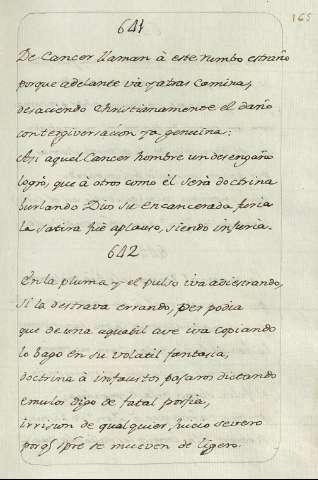 165
641
De Cancer llaman à este rumbo estraño
porque adelante và y atras Camina,
desaciendo christianamente el daño
con tergiversacion ya genuina:
Asi aquel Cancer hombre un desengaño
logrò, que à otros como èl serà doctrina
burlando Dios su encancerada furia
la satira fuè aplauso, siendo injuria.
642
En la pluma y el pulso iva adiestrando,
si la destrava errando, ser podia
que de una aguabil ave iva copiando
lo bago en su volatil fantasia,
doctrina à infaustos pajaros dictando
emulos digo de fatal porfia,
irrision de qualquier juicio severo
porq̃ spr̃e se mueven de ligero.